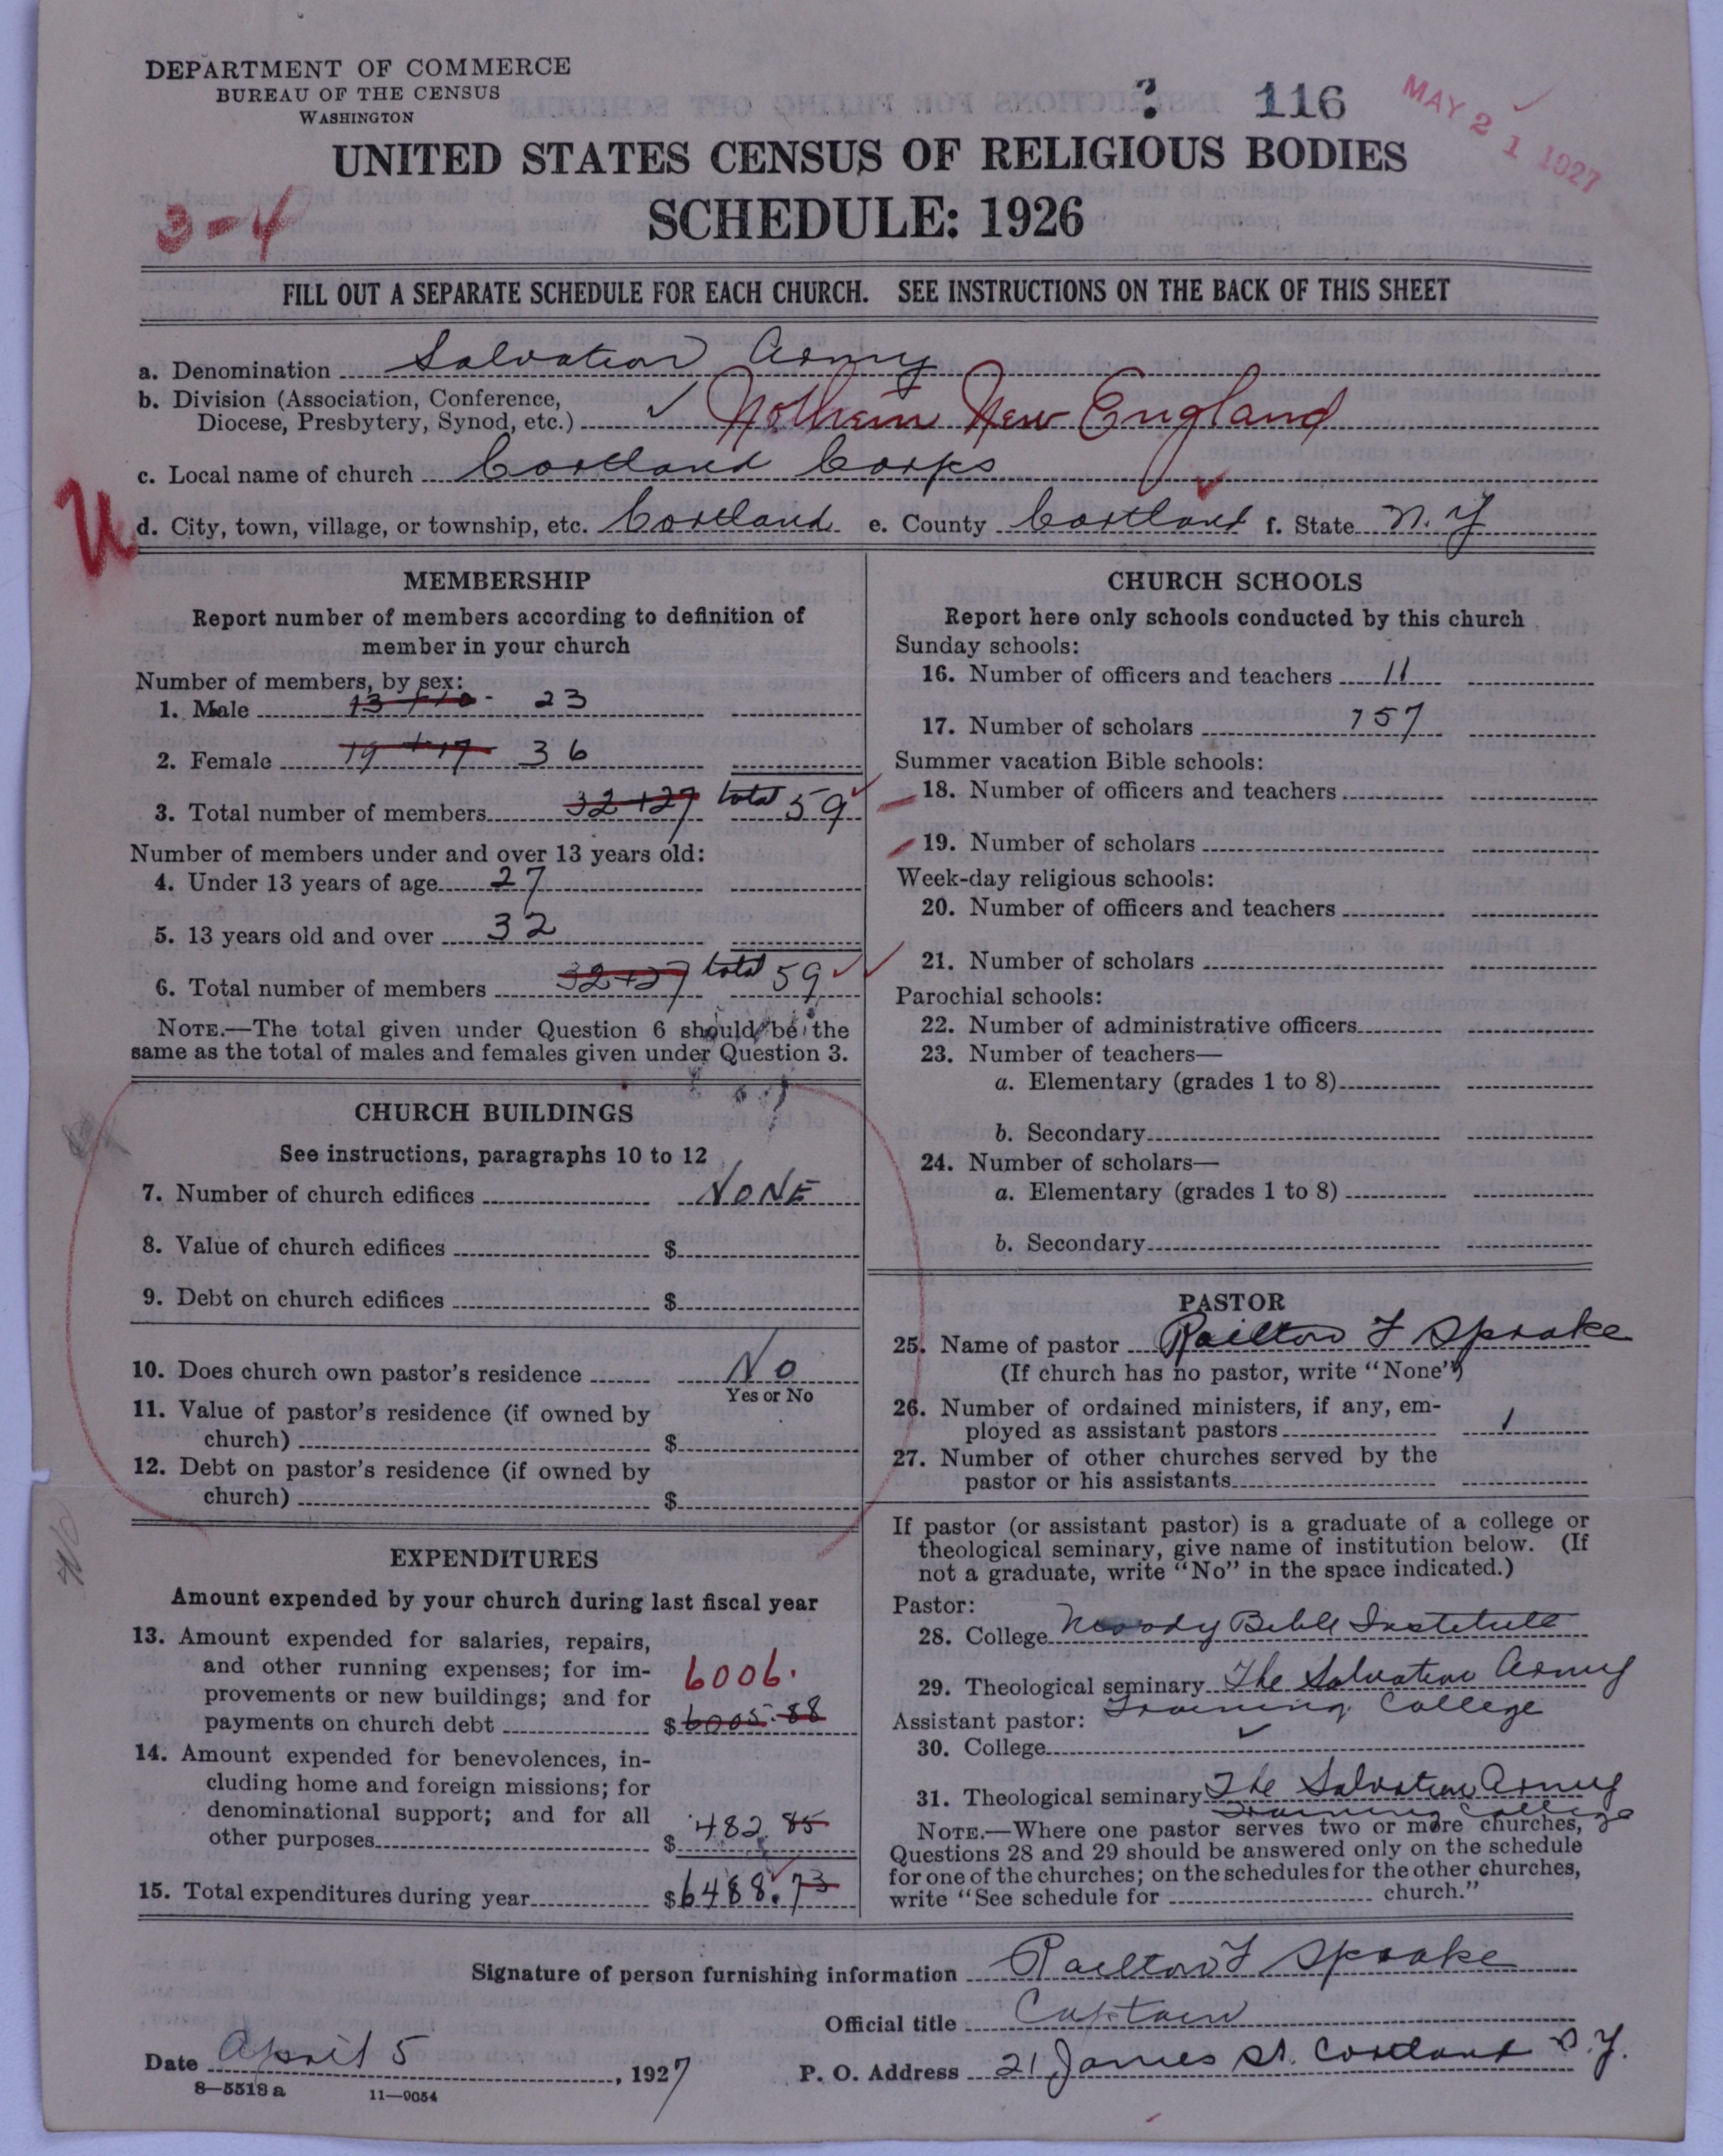 DEPARTMENT OF COMMERCE
BUREAU OF THE CENSUS
WASHINGTON
? 116
MAY 21 1927
UNITED STATES CENSUS OF RELIGIOUS BODIES
3-4
SCHEDULE: 1926
FILL OUT A SEPARATE SCHEDULE FOR EACH CHURCH. SEE INSTRUCTIONS ON THE BACK OF THIS SHEET
a. Denomination Salvation Army
b. Division (Association, Conference,
Diocese, Presbytery, Synod, etc.) Nothern New England
c. Local name of church Cortland Corps
U
d. City, town, village, or township, etc. Cortland e. County Cortland f. State N.Y
MEMBERSHIP
Report number of members according to definition of
member in your church
Number of members, by sex:
1. Male 13 + 10 - 23
2. Female 19 + 17 36
3. Total number of members 32+27 total 59
Number of members under and over 13 years old:
4. Under 13 years of age 27
5. 13 years old and over 32
6. Total number of members 32+27 total 59
NOTE.—The total given under Question 6 should be the
same as the total of males and females given under Question 3.
CHURCH BUILDINGS
See instructions, paragraphs 10 to 12
7. Number of church edifices NONE
8. Value of church edifices $
9. Debt on church edifices $
10. Does church own pastor's residence No
Yes or No
11. Value of pastor's residence (if owned by
church) $
12. Debt on pastor's residence (if owned by
church) $
EXPENDITURES
Amount expended by your church during last fiscal year
13. Amount expended for salaries, repairs,
and other running expenses; for im-
provements or new buildings; and for 6006.
payments on church debt $6005.88
14. Amount expended for benevolences, in-
cluding home and foreign missions; for
denominational support; and for all
other purposes $482.85
15. Total expenditures during year $6488.73
CHURCH SCHOOLS
Report here only schools conducted by this church
Sunday schools:
16. Number of officers and teachers 11
17. Number of scholars 157
Summer vacation Bible schools:
18. Number of officers and teachers
19. Number of scholars
Week-day religious schools:
20. Number of officers and teachers
21. Number of scholars
Parochial schools:
22. Number of administrative officers
23. Number of teachers—
a. Elementary (grades 1 to 8)
b. Secondary
24. Number of scholars—
a. Elementary (grades 1 to 8)
b. Secondary
PASTOR
25. Name of pastor Railton F Sprake
(If church has no pastor, write "None")
26. Number of ordained ministers, if any, em-
ployed as assistant pastors 1
27. Number of other churches served by the
pastor or his assistants
If pastor (or assistant pastor) is a graduate of a college or
theological seminary, give name of institution below. (If
not a graduate, write "No" in the space indicated.)
Pastor:
28. College Moody Bible Institute
29. Theological seminary The Salvation Army
Training College
Assistant pastor:
30. College
31. Theological seminary The Salvation Army
Training College
NOTE.—Where one pastor serves two or more churches,
Questions 28 and 29 should be answered only on the schedule
for one of the churches; on the schedules for the other churches,
write "See schedule for church."
Signature of person furnishing information Railton F Sprake
Official title Captain
Date April 5, 1927 P. O. Address 21 James St. Cortland N.Y.
8—5518 a 11—9054